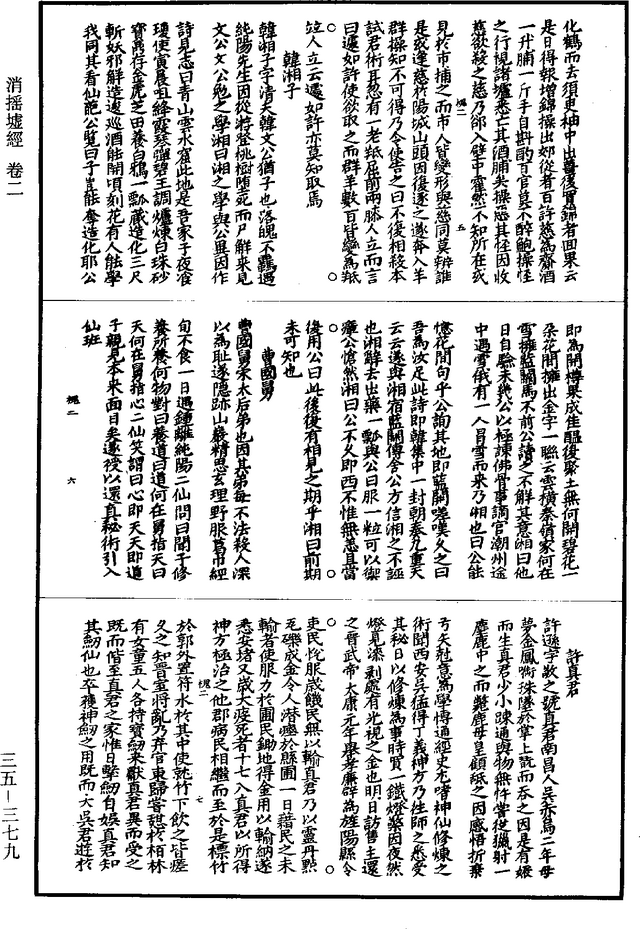 消摇墟經 卷二
化鶴而去須臾袖中出蜀後買錦者回果云
是日得報增錦操出郊從者百許慈為齎酒
一升脯一斤手自斟酌百官莫不醉飽操怪
之行視諸壚悉亡其酒脯矣操惡其怪因收
慈欲殺之慈乃卻入壁中霍然不知所在或
見於市捕之而市人皆變形與慈同莫辨誰
是或逢慈於陽城山頭因復逐之遂奔入羊
群操知不可得乃令使告之曰不復相殺本
試君術耳忽有一老羝屈前兩膝人立而言
曰遽如許使欲取之而群羊數百皆變為羝
竝人立云遽如許亦莫知取焉
韓湘子
韓湘子字清夫韓文公猶子也落魄不羈遇
純陽先生因從游登桃樹墮死而尸解來見
文公文公勉之學湘曰湘之學與公異因作
詩見志曰青山雲水窟此地是吾家子夜飡
瓊液寅晨咀絳霞琴彈碧玉調爐煉白珠砂
寶鼎存金虎芝田養白鴉一瓢藏造化三尺
斬妖邪解造逡巡酒能開頃刻花有人能學
我同共看仙葩公覽曰子豈能奪造化耶公
即為開樽果成佳醞復聚土無何開碧花一
朵花間擁出金字一聯云雲橫秦嶺家何在
雪擁藍關馬不前公讀之不解其意湘曰他
日自驗未幾公以極諫佛骨事謫官潮州途
中遇雪俄有一人冒雪而來乃湘也曰公能
憶花間句乎公詢其地即藍關嗟嘆久之曰
吾為汝足此詩即韓集中一封朝奏九重天
云云遂與湘宿藍關傳舍公方信湘之不誣
也湘辭去出藥一瓢與公曰服一粒可以禦
瘴公愴然湘曰公不久即西不惟無恙且當
復用公曰此後復有相見之期乎湘曰前期
未可知也
曹國舅
曹國舅宋太后弟也因其弟每不法殺人深
以為恥遂隱跡山巖精思玄理野服葛巾經
旬不食一日遇鍾離純陽二仙問曰聞子修
養所養何物對曰養道曰道何在舅指天曰
天何在舅指心二仙笑謂曰心即天天即道
子親見本來面目矣遂授以還真秘術引入
仙班
許真君
許遜字敬之號真君南昌人吳赤烏二年母
夢金鳳銜珠墜於掌上玩而吞之因是有娠
而生真君少小疎通與物無忤嘗從獵射一
麀鹿中之而斃鹿母皇顧舐之因感悟折棄
弓矢剋意為學博通經史尤嗜神仙修煉之
術聞西安吳猛得丁義神方乃往師之悉受
其秘日以修煉為事時買一鐵燈檠因夜然
燈見漆剝處有光視之金也明日訪售主還
之晉武帝太康元年舉孝廉辟為旌陽縣令
吏民悅服歲饑民無以輸真君乃以靈丹點
瓦礫成金令人潛瘞於縣圃一日藉民之未
輸者使服力於圃民鋤地得金用以輸納遂
悉安堵又歲大疫死者十七八真君以所得
神方極治之他郡病民相繼而至於是標竹
於郭外置符水於其中使就竹下飲之皆瘥
久之知晉室將亂乃弃官東歸嘗憩於栢林
有女童五人各持寶劒來獻真君異而受之
既而偕至真君之家惟日擊劒自娛真君知
其劒仙也卒獲神劒之用既而大吳君遊於
槐二
五
槐二
六
槐二
七
三五—三七九